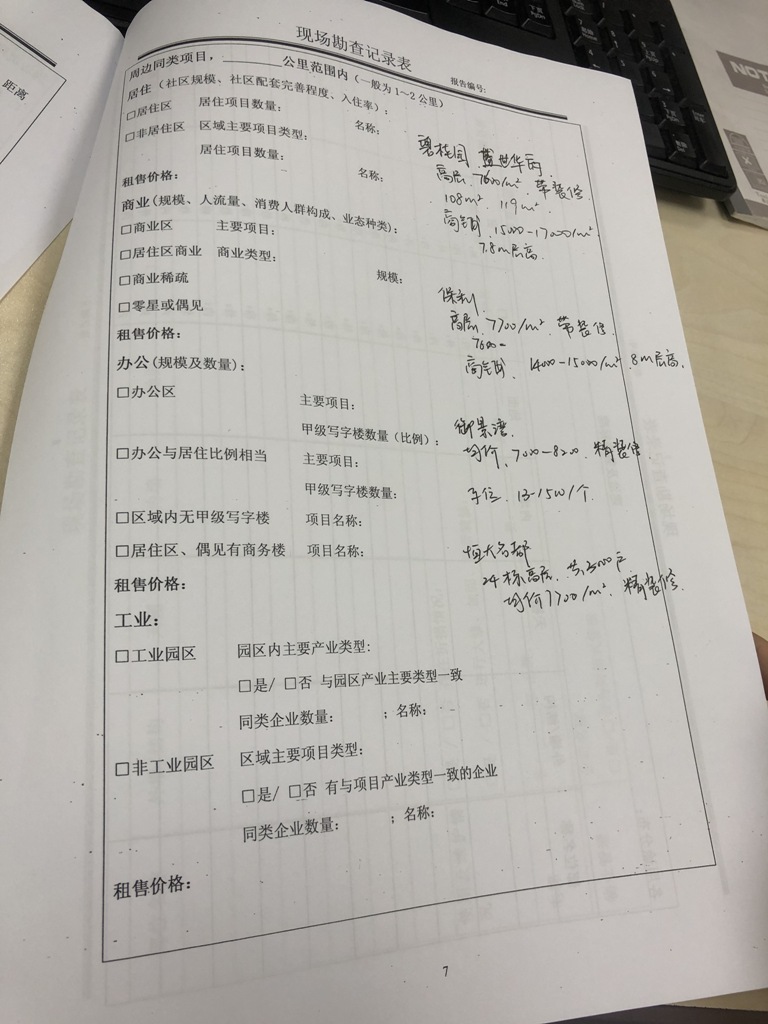 距离
现场勘查记录表
报告编号:
周边同类项目，________公里范围内（一般为1~2公里）
居住（社区规模、社区配套完善程度、入住率）:
□居住区 居住项目数量: 名称:
□非居住区 区域主要项目类型:
居住项目数量: 名称:
碧桂园
高层 7600/m² 带装修
108m² 119m²
租售价格:
商业(规模、人流量、消费人群构成、业态种类):
商铺 15000-17000/m²
7.8m层高
□商业区 主要项目:
□居住区商业 商业类型:
□商业稀疏 规模:
□零星或偶见
保利
高层 7700/m² 带装修
7600-
商铺 14000-15000/m² 8m层高
租售价格:
办公(规模及数量):
□办公区 主要项目:
甲级写字楼数量(比例):
御景湾
均价 7000-8200 精装修
□办公与居住比例相当 主要项目:
甲级写字楼数量:
车位 13-15W/个
□区域内无甲级写字楼 项目名称:
□居住区、偶见有商务楼 项目名称:
恒大名都
24栋高层 共3000户
均价7700/m² 精装修
租售价格:
工业:
□工业园区 园区内主要产业类型:
□是/ □否 与园区产业主要类型一致
同类企业数量: ；名称:
□非工业园区 区域主要项目类型:
□是/ □否 有与项目产业类型一致的企业
同类企业数量: ；名称:
租售价格:
7